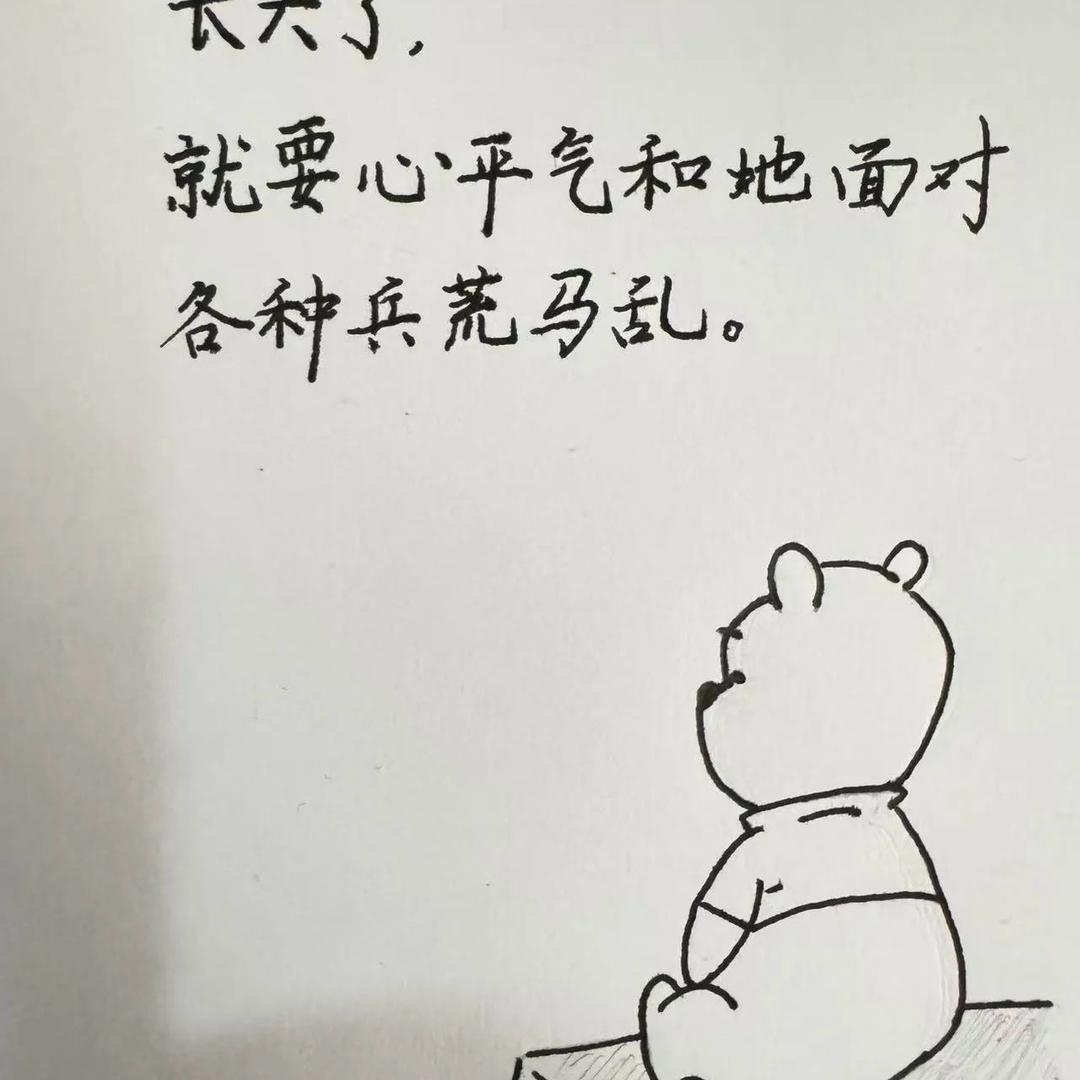 长大了,
就要心平气和地面对
各种兵荒马乱。